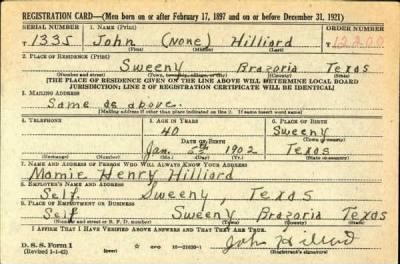 REGISTRATION CARD—(Men born on or after February 17, 1897 and on or before December 31, 1921)
SERIAL NUMBER 1. NAME (Print) ORDER NUMBER
T1335 John (none) Hilliard
(First) (Middle) (Last)
2. PLACE OF RESIDENCE (Print)
Sweeny Brazoria Texas
(Number and street) (Town, township, village, or city) (County) (State)
[THE PLACE OF RESIDENCE GIVEN ON THE LINE ABOVE WILL DETERMINE LOCAL BOARD
JURISDICTION; LINE 2 OF REGISTRATION CERTIFICATE WILL BE IDENTICAL]
3. MAILING ADDRESS
Same as above.
[Mailing address if other than place indicated on line 2. If same insert word same]
4. TELEPHONE 5. AGE IN YEARS 6. PLACE OF BIRTH
40 Sweeny
DATE OF BIRTH (Town or county)
Jan. 1902 Texas
(Exchange) (Number) (Mo.) (Day) (Yr.) (State or country)
7. NAME AND ADDRESS OF PERSON WHO WILL ALWAYS KNOW YOUR ADDRESS
Mamie Henry Hilliard
8. EMPLOYER'S NAME AND ADDRESS
Self. Sweeny, Texas
9. PLACE OF EMPLOYMENT OR BUSINESS
Self Sweeny Brazoria Texas
(Number and street or R. F. D. number) (Town) (County) (State)
I AFFIRM THAT I HAVE VERIFIED ABOVE ANSWERS AND THAT THEY ARE TRUE.
D. S. S. Form 1
(Revised 1-1-42) (over) 16—21630-1 John Hilliard
(Registrant's signature)